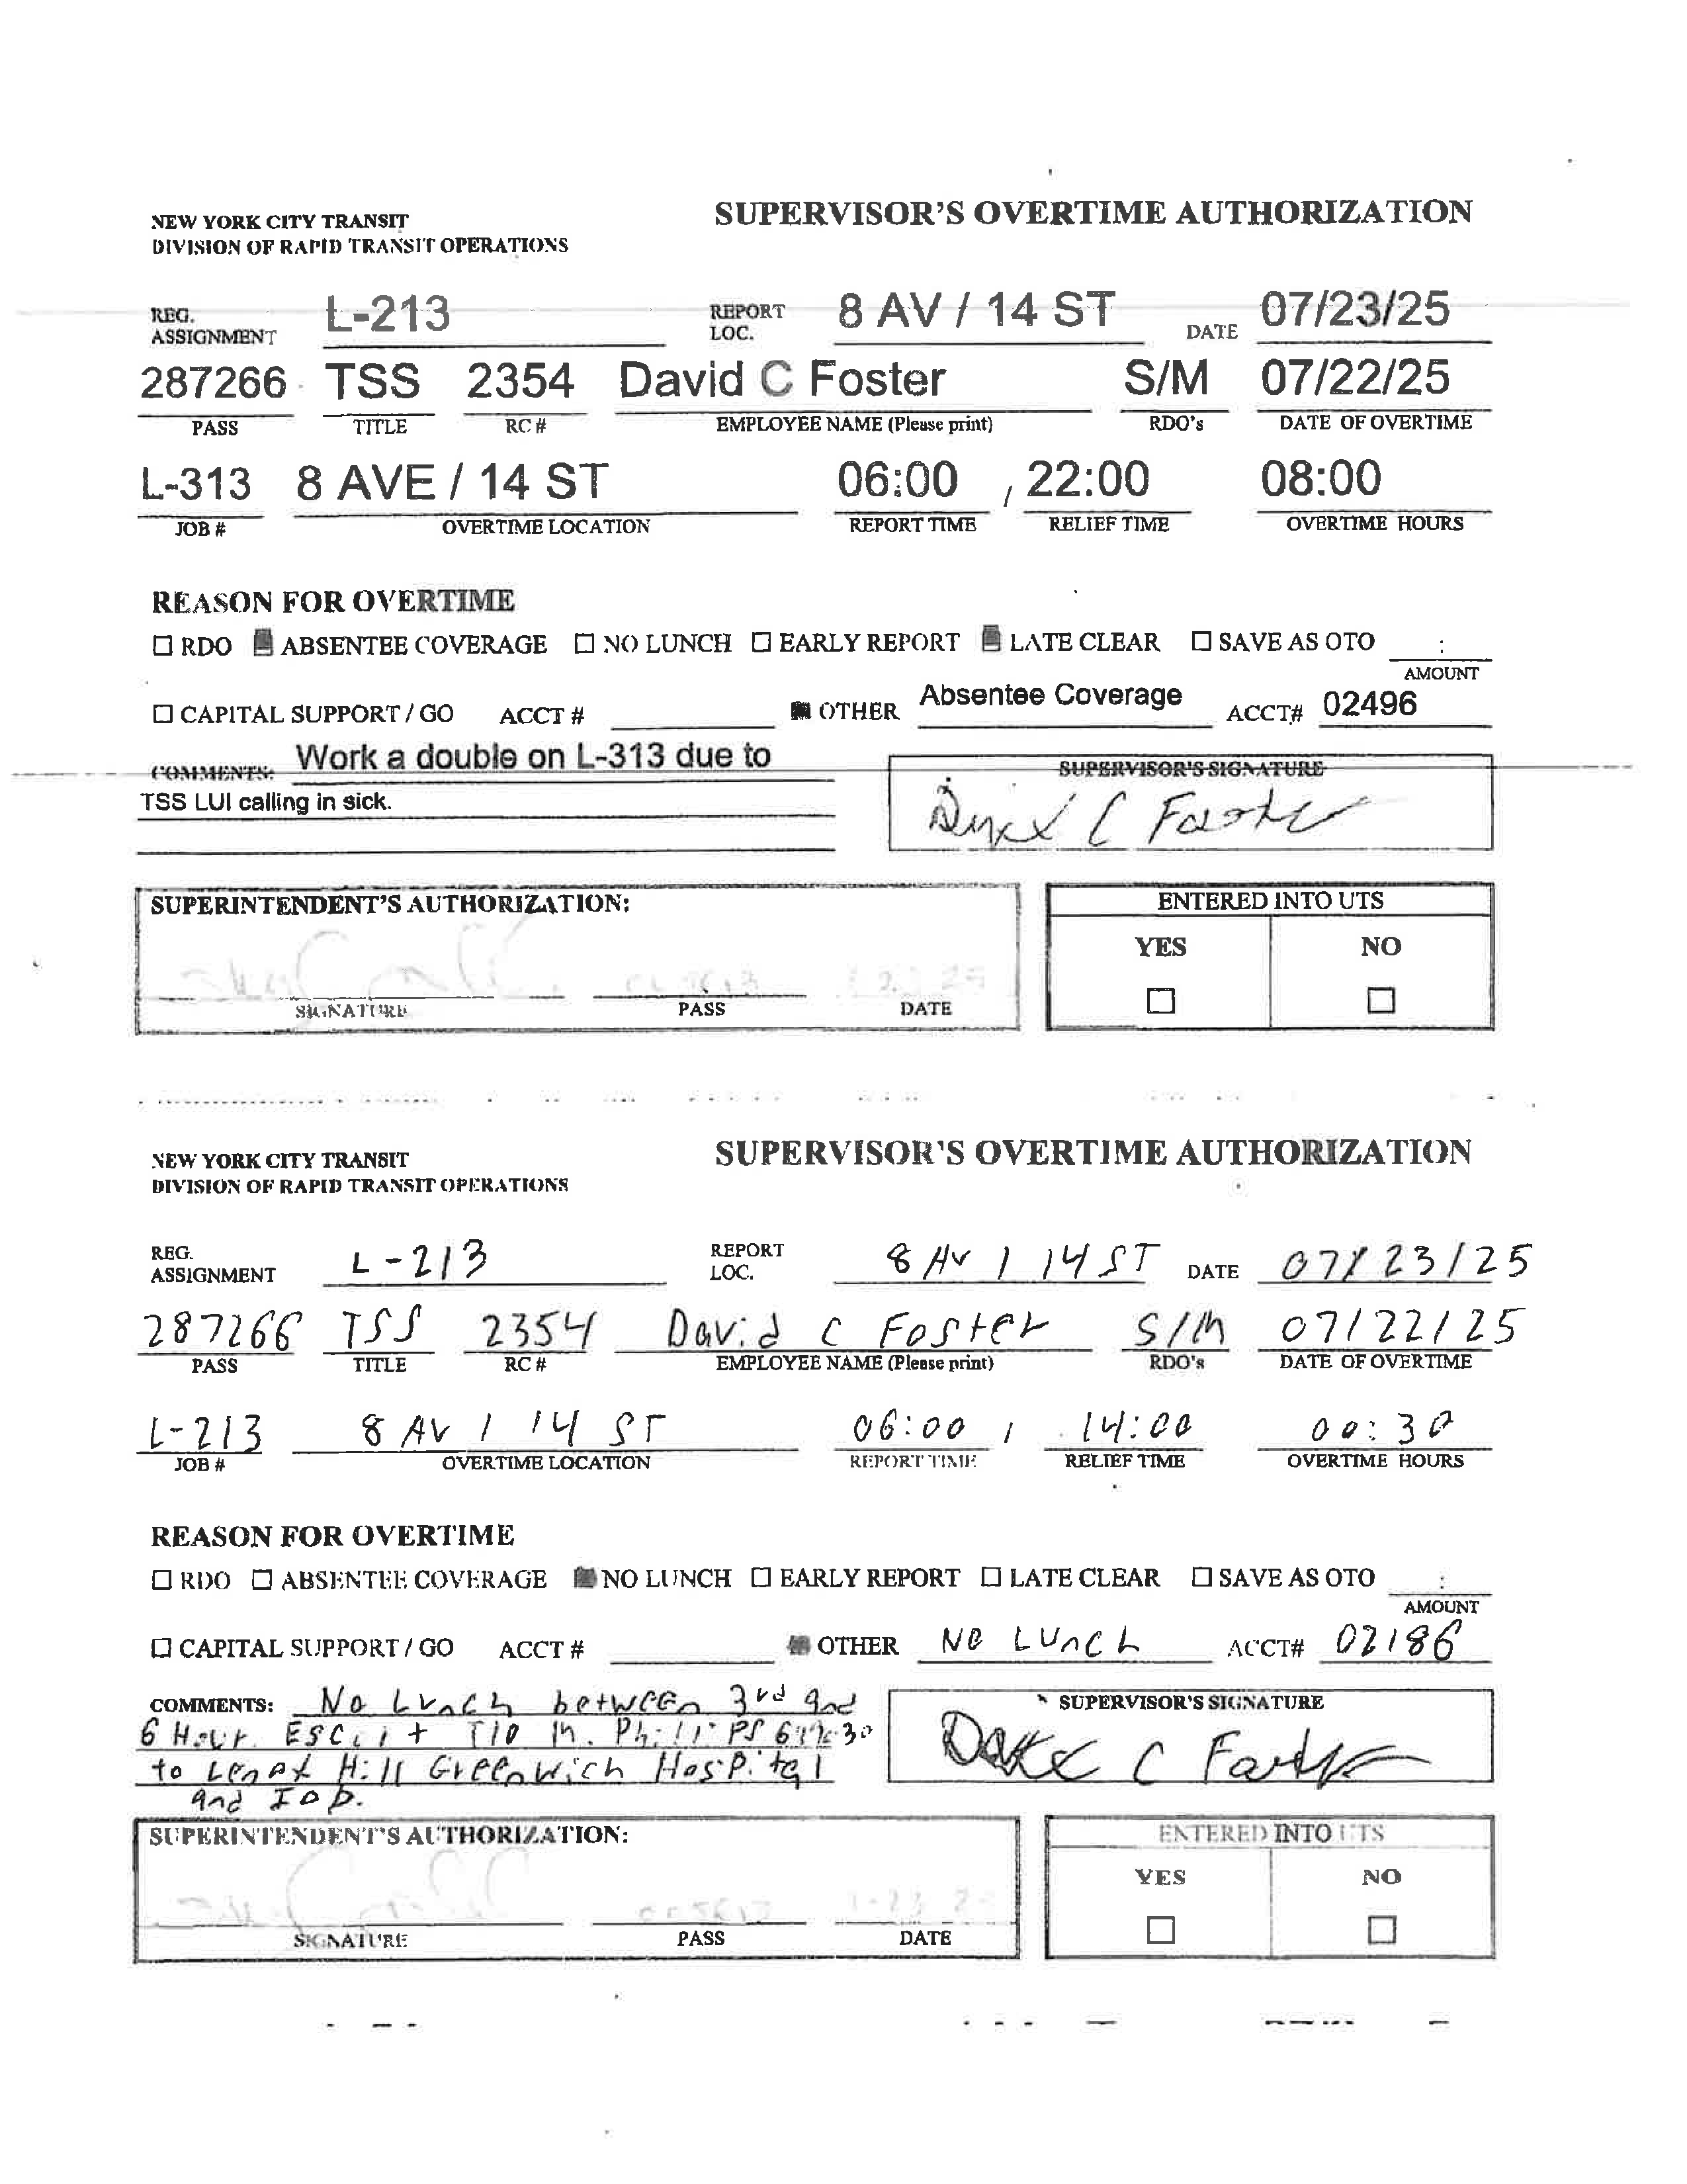 NEW YORK CITY TRANSIT
DIVISION OF RAPID TRANSIT OPERATIONS
SUPERVISOR'S OVERTIME AUTHORIZATION
REG. ASSIGNMENT L-213 REPORT LOC. 8 AV / 14 ST DATE 07/23/25
287266 TSS 2354 David C Foster S/M 07/22/25
PASS TITLE RC # EMPLOYEE NAME (Please print) RDO's DATE OF OVERTIME
L-313 8 AVE / 14 ST 06:00 / 22:00 08:00
JOB # OVERTIME LOCATION REPORT TIME RELIEF TIME OVERTIME HOURS
REASON FOR OVERTIME
RDO ABSENTEE COVERAGE NO LUNCH EARLY REPORT LATE CLEAR SAVE AS OTO :
AMOUNT
CAPITAL SUPPORT / GO ACCT # OTHER Absentee Coverage ACCT# 02496
COMMENTS: Work a double on L-313 due to
TSS LUI calling in sick.
SUPERVISOR'S SIGNATURE
C Foster
SUPERINTENDENT'S AUTHORIZATION:
SIGNATURE PASS DATE
ENTERED INTO UTS
YES NO
NEW YORK CITY TRANSIT
DIVISION OF RAPID TRANSIT OPERATIONS
SUPERVISOR'S OVERTIME AUTHORIZATION
REG. ASSIGNMENT L-213 REPORT LOC. 8 AV / 14 ST DATE 07/23/25
287266 TSS 2354 David C Foster S/M 07/22/25
PASS TITLE RC # EMPLOYEE NAME (Please print) RDO's DATE OF OVERTIME
L-213 8 AV / 14 ST 06:00 / 14:00 00:30
JOB # OVERTIME LOCATION REPORT TIME RELIEF TIME OVERTIME HOURS
REASON FOR OVERTIME
RDO ABSENTEE COVERAGE NO LUNCH EARLY REPORT LATE CLEAR SAVE AS OTO :
AMOUNT
CAPITAL SUPPORT / GO ACCT # OTHER NO LUnch ACCT# 02186
COMMENTS: No Lunch between 3rd and
6 Hour. T/O M. Phillips
to Lenox Hill Greenwich Hospital
and IOD.
SUPERVISOR'S SIGNATURE
C
SUPERINTENDENT'S AUTHORIZATION:
SIGNATURE PASS DATE
ENTERED INTO UTS
YES NO